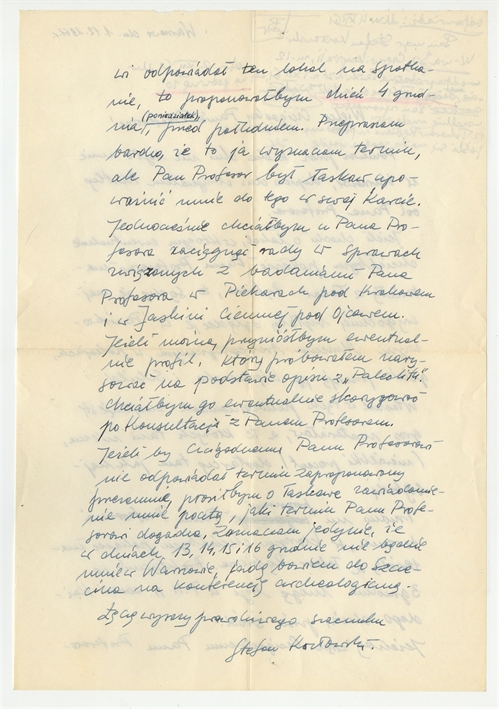 wi odpowiadał ten lokal na spotka-
nie, to proponowałbym dzień 4 grud-
nia (poniedziałek), przed południem. Przepraszam
bardzo, że to ja wyznaczam termin,
ale Pan Profesor był łaskaw upo-
ważnić mnie do tego w swej Karcie.
Jednocześnie chciałbym u Pana Pro-
fesora zaciągnąć rady w sprawach
związanych z badaniami Pana
Profesora w Piekarach pod Krakowem
i w Jaskini Ciemnej pod Ojcowem.
Jeżeli można, przyniósłbym ewentual-
nie profil, który próbowałem nary-
sować na podstawie opisu z „Paleolitu”.
Chciałbym go ewentualnie skorygować
po Konsultacji z Panem Profesorem.
Jeżeli by Czcigodnemu Panu Profesorowi
nie odpowiadał termin zaproponowany
przeze mnie, prosiłbym o łaskawe zawiadomie-
nie mnie pocztą, jaki termin Panu Profe-
sorowi dogadza. Zaznaczam jedynie, że
w dniach, 13, 14, 15 i 16 grudnia nie będzie
mnie w Warszawie, jadę bowiem do Szcze-
cina na konferencję archeologiczną.
Łączę wyrazy prawdziwego szacunku
Stefan Kozłowski.